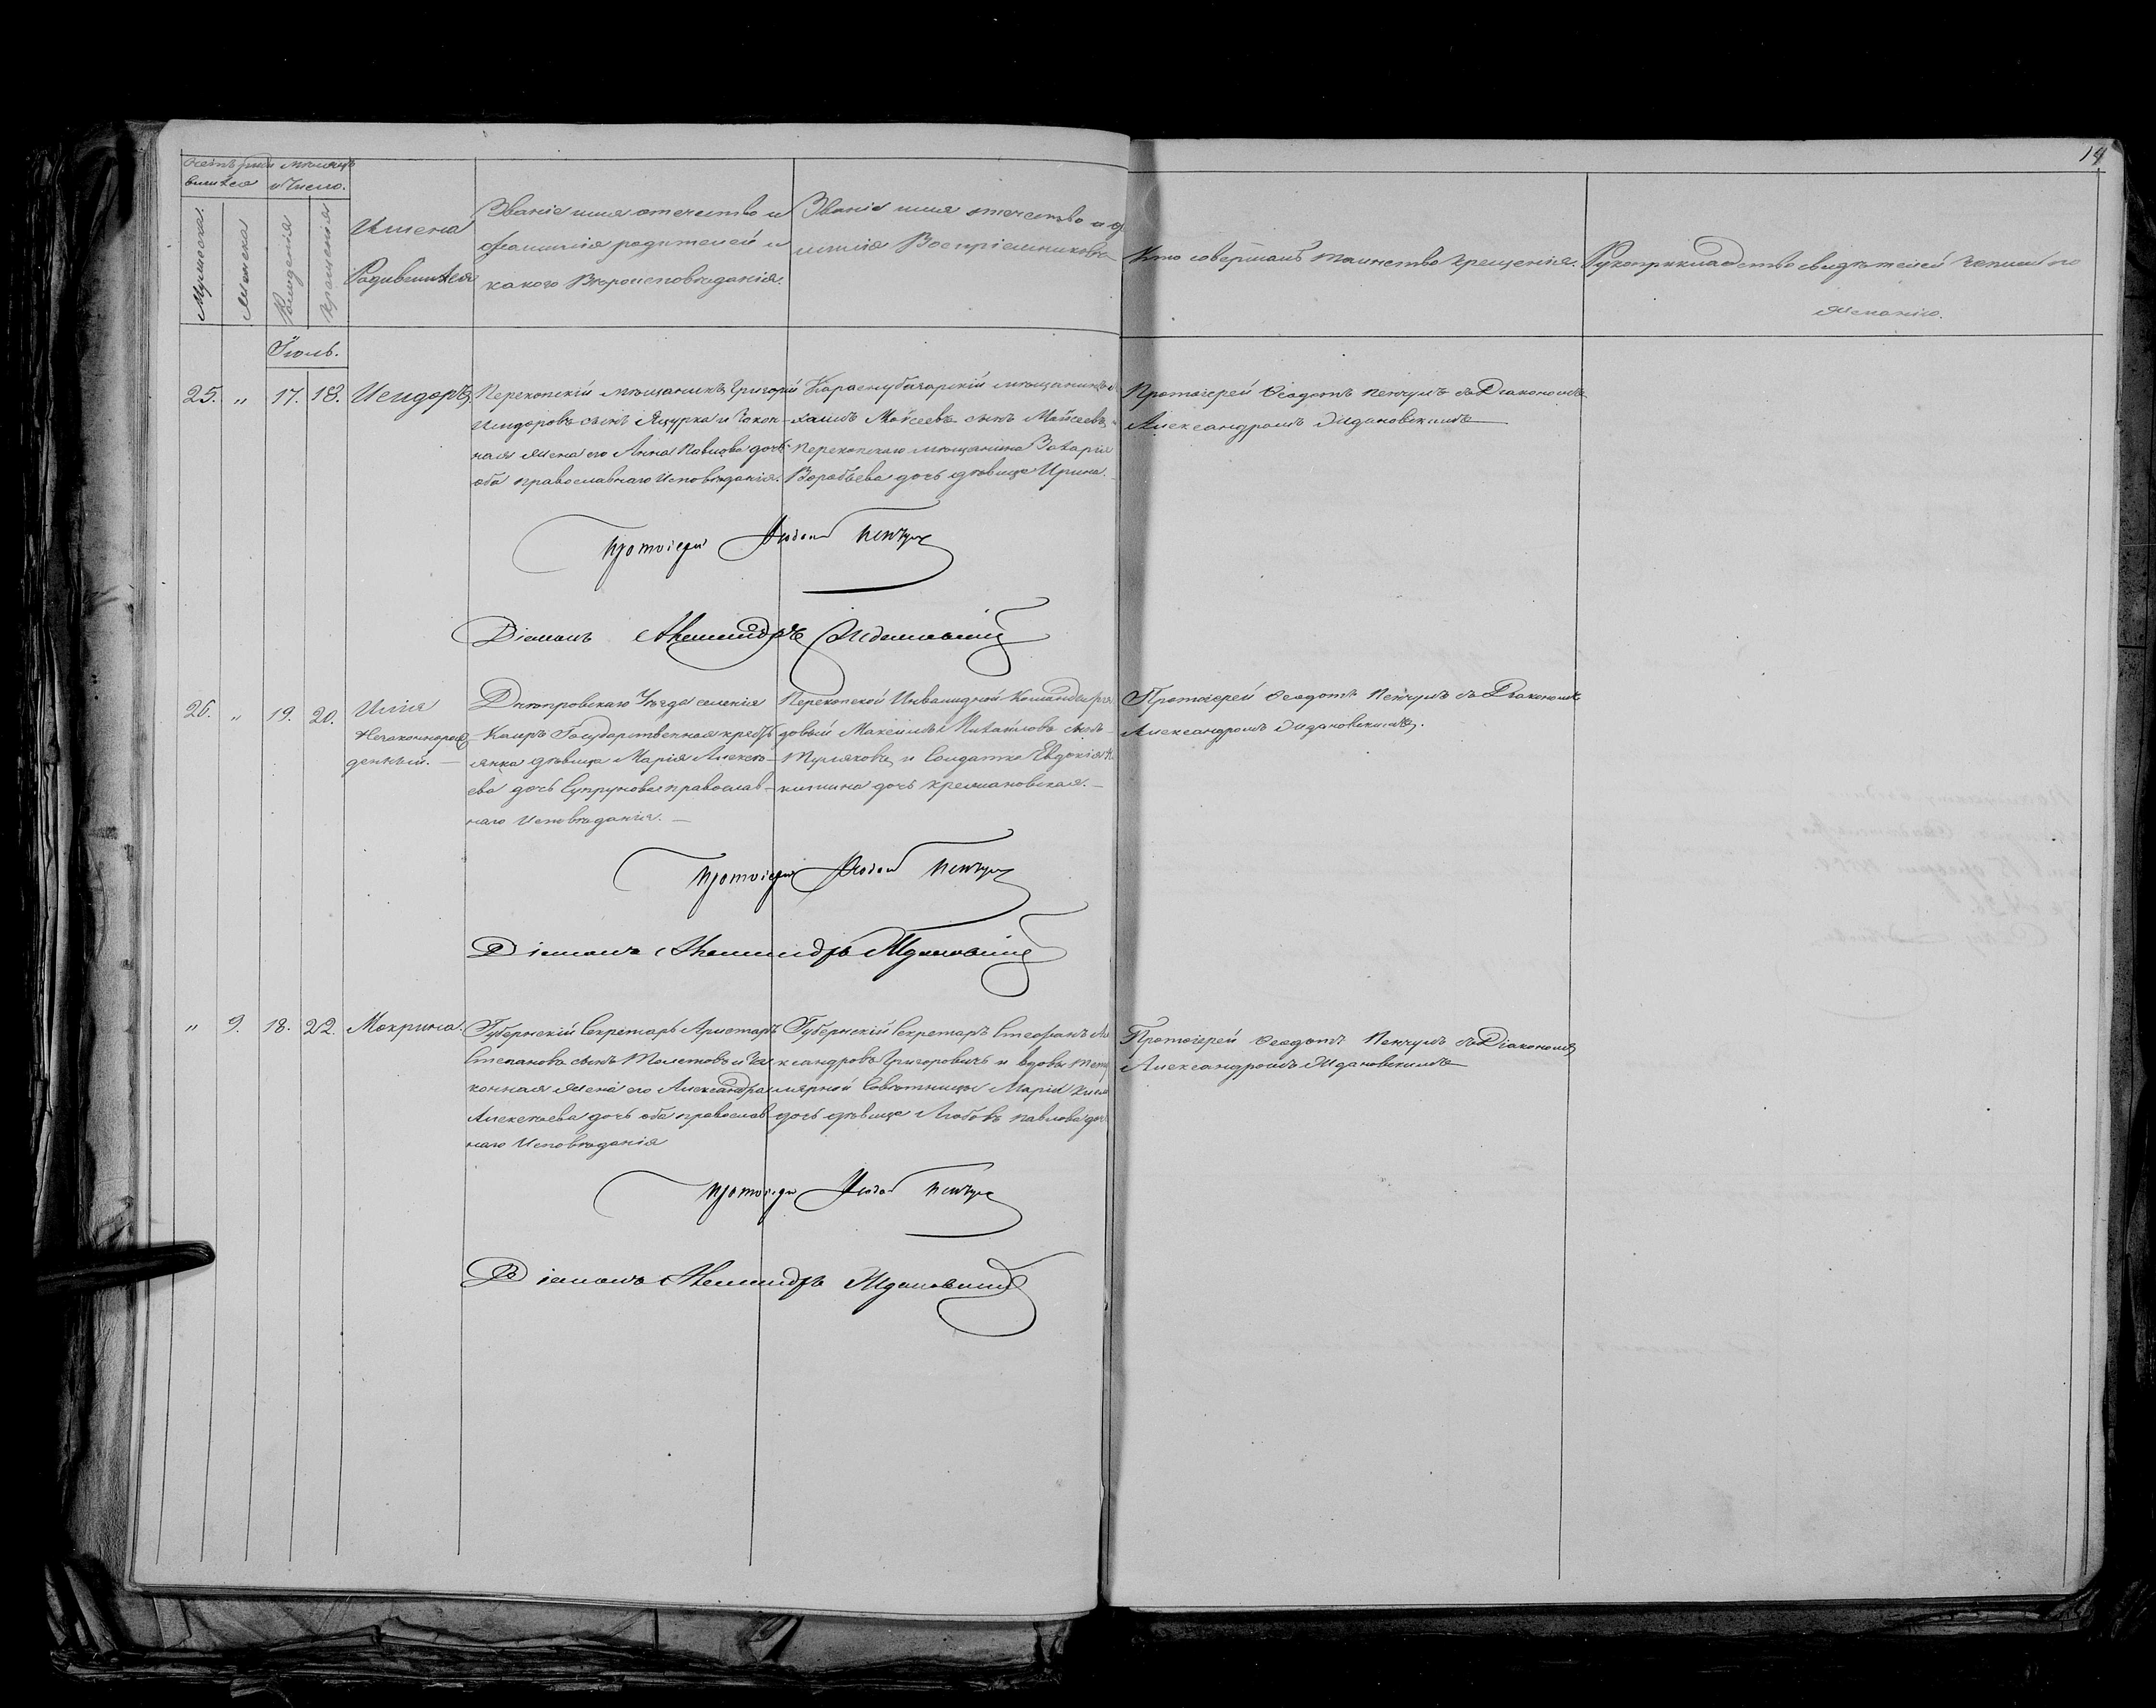 14
Счетъ роди месяцъ
вшихся и Число.
Мужеска.
Женска
Рожденія
Крещенія
Имена
Родившихся
Званіе имя отечество и
фамилія родителей и
какого Вероисповеданія.
Званіе имя отечество и ф
милія Воспріемниковъ
Кто совершалъ таинство Крещенія.
Рукоприкладство свидетелей записи по
желанію.
Іюль.
25. „ 17. 18. Исидоръ.
Перекопскій мещанинъ Григорій
Исидоровъ сынъ Яцурка и Закон-
ная жена его Анна Павлова дочь
оба православнаго Исповеданія.
Карасубазарскій мещанинъ
Моисеевъ сынъ Моисеевъ
Перекопскаго мещанина Захарія
Воробьева дочь девица Ирина.
Протоіерей Феодотъ Пенчулъ съ Діакономъ
Александромъ Ждановскимъ
Протоіерей Феодотъ Пенчулъ
Діаконъ Александръ Ждановскій
26. „ 19. 20. Илія
Незаконнорож
денный.
Днепровскаго Уезда селенія
Каиръ Государственная кресть
янка девица Марія Алексе-
ева дочь Супрунова православ-
наго Исповеданія.
Перекопской Инвалидной Команды ря
довый Максимъ Михайловъ сынъ
и Солдатка Евдокія
дочь
Протоіерей Феодотъ Пенчулъ съ Діакономъ
Александромъ Ждановскимъ.
Протоіерей Феодотъ Пенчулъ
Діаконъ Александръ Ждановскій
„ 9. 18. 22. Макрина.
Губернскій Секретарь Аристархъ
Степановъ сынъ Толстовъ и За
конная жена его Александра
Алексеева дочь оба православ
наго Исповеданія
Губернскій Секретарь Стефанъ Ал
ександровъ Григоровичъ и вдовы Тит
улярной Советницы Маріи
дочь девица Любовь Павлова доч
Протоіерей Феодотъ Пенчулъ съ Діакономъ
Александромъ Ждановскимъ
Протоіерей Феодотъ Пенчулъ
Діаконъ Александръ Ждановскій